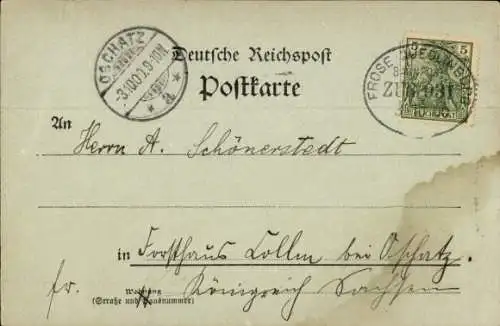 OSCHATZ
3.10.00. 9-10N
* a *
Deutsche Reichspost
Postkarte
5
FROSE QUEDLINBURG
ZUG 931
An
Herrn A. Schönerstedt
in Forsthaus Collm bei Oschatz.
fr. Königreich Sachsen
Wohnung
(Straße und Hausnummer)